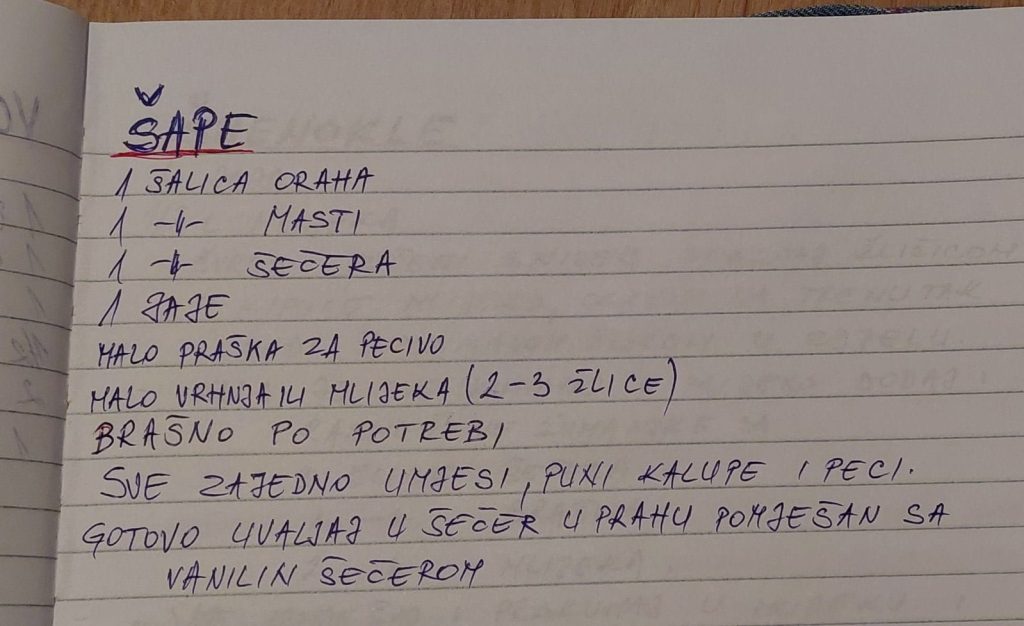 ŠAPE
1 ŠALICA ORAHA
1 -||- MASTI
1 -||- ŠEČERA
1 JAJE
MALO PRAŠKA ZA PECIVO
MALO VRHNJA ILI MLIJEKA (2-3 ŽLICE)
BRAŠNO PO POTREBI
SVE ZAJEDNO UMJESI, PUNI KALUPE I PECI.
GOTOVO UVALJAJ U ŠEČER U PRAHU POMJEŠAN SA
VANILIN ŠEČEROM